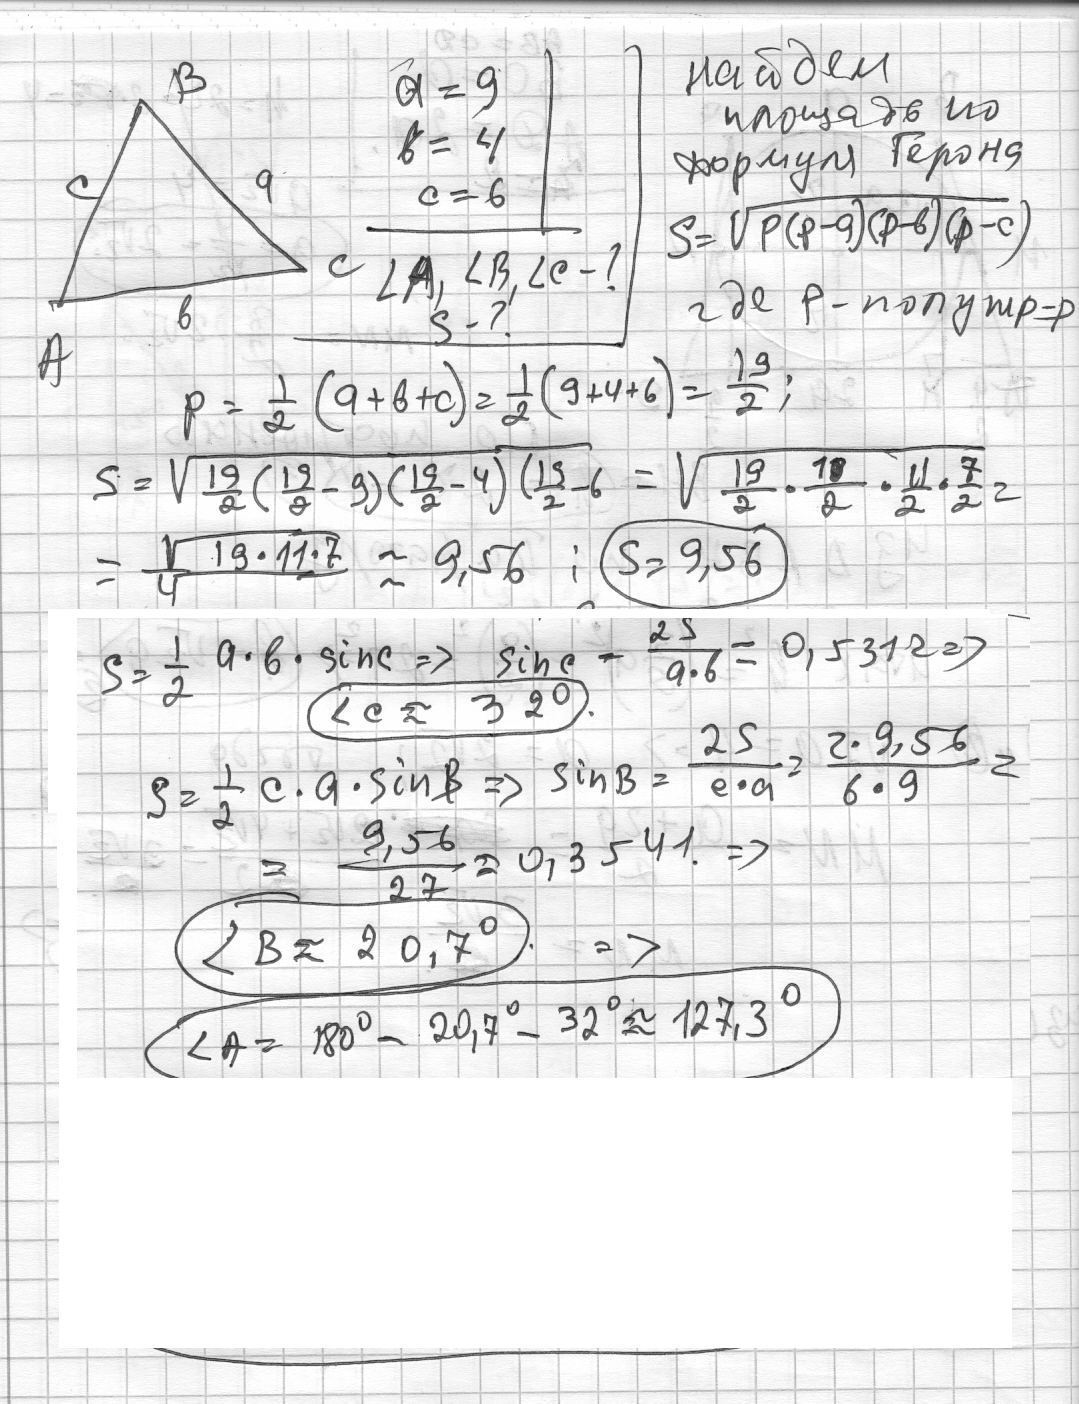 B
c a
A b C
a = 9
b = 4
c = 6
∠A, ∠B, ∠C - ?
S - ?
найдем
площадь по
формуля Герона
S = √P(P-a)(P-b)(p-c)
где P - полупр = p
P = 1/2 (a+b+c) = 1/2 (9+4+6) = 19/2;
S = √19/2 (19/2 - 9)(19/2 - 4)(19/2 - 6 = √19/2 · 1/2 · 11/2 · 7/2 =
= √19·11·7 / 4 ≈ 9,56 ; S = 9,56
S = 1/2 a·b·sinc => sinc = 2S/a·b = 0,5312 =>
∠C ≈ 32°.
S = 1/2 c·a·sinB => sinB = 2S/c·a = 2·9,56/6·9 =
= 9,56/27 = 0,3541. =>
∠B ≈ 20,7°. =>
∠A = 180° - 20,7° - 32° ≈ 127,3°